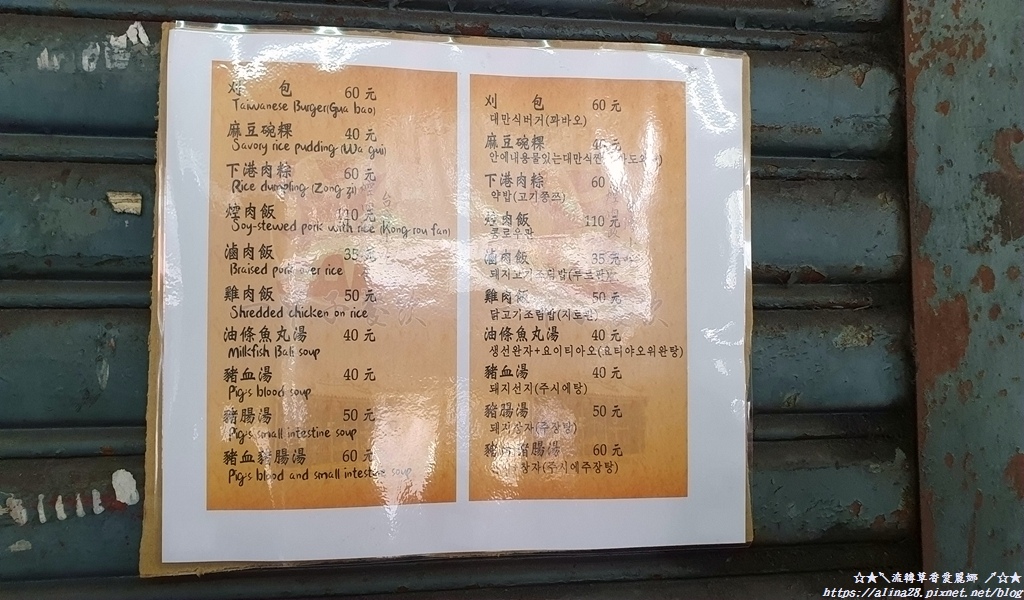 刈 包 60 元
Taiwanese Burger(Gua bao)
麻豆碗粿 40 元
Savory rice pudding (Wa gui)
下港肉粽 60 元
Rice dumpling (Zong zi)
焢肉飯 110 元
Soy-stewed pork with rice (Kong rou fan)
滷肉飯 35 元
Braised pork over rice
雞肉飯 50 元
Shredded chicken on rice
油條魚丸湯 40 元
Milkfish Ball soup
豬血湯 40 元
Pig's blood soup
豬腸湯 50 元
Pig's small intestine soup
豬血豬腸湯 60 元
Pig's blood and small intestine soup
刈 包 60 元
대만식버거(꽈바오)
麻豆碗粿 40 元
안에내용물있는대만식
下港肉粽 60
약밥(고기쫑쯔)
焢肉飯 110 元
콩로우판
滷肉飯 35 元
돼지고기조림밥
雞肉飯 50 元
닭고기조림밥(지로판)
油條魚丸湯 40 元
생선완자+요이티아오(요티야오위완탕)
豬血湯 40 元
돼지선지(주시에탕)
豬腸湯 50 元
돼지창자(주장탕)
豬腸湯 60 元
창자(주시에주장탕)
☆★╲流韓草香愛麗娜 ╱☆★
https://alina28.pixnet.net/blog